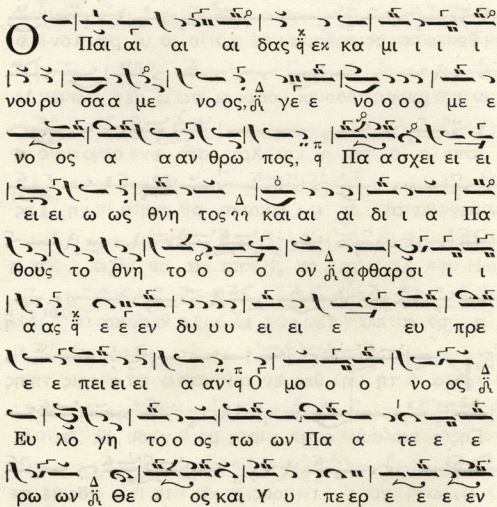 Ο Παι αι αι αι δας εκ κα μι ι ι
νου ρυ σα α με νο ος, γε ε νο ο ο ο με ε
νο ος α α αν θρω πος, Πα α σχει ει ει
ει ει ω ως θνη τος και αι αι δι ι α Πα
θους το θνη το ο ο ο ον α φθαρ σι ι ι
α ας ε ε εν δυ υ υ ει ει ευ πρε
ε πει ει ει α αν Ο μο ο ι ο νο ος
Ευ λο γη το ο ος τω ων Πα α τε ε
ρω ων Θε ο ος και Υ υ πε ερ ε ε ε εν